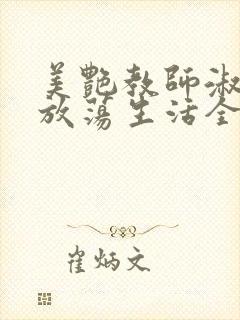 美艷教師淑
放蕩生活全
崔炳文